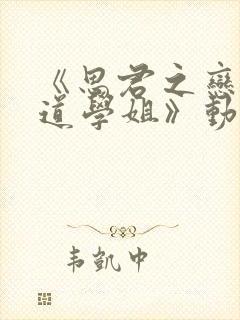 《思君之戀
道學姐》動
韦凱中